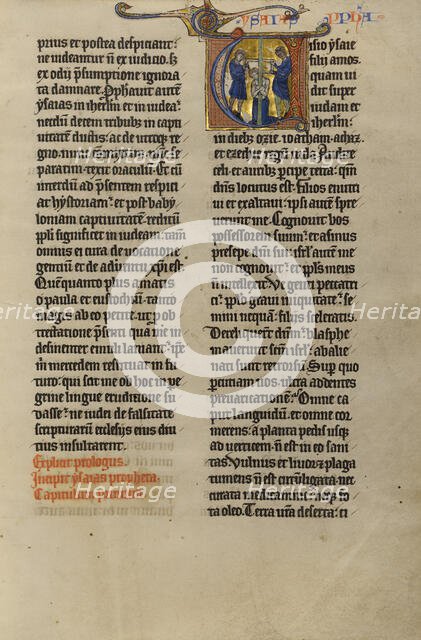 ysaias ppha
prius et postea despiciant:
ne iudeantur nō ex iudicio. sz
ex odii psumptione ignora
ta damnare. Prophauit autē
ysaias in ihrlm et in iudea:
necdū decem tribubz in capti
uitatem ductis: ac de utroqz re
gno. nūc
paratim: texit oraculū. Et cū
interdū ad psentem respici
at hystoriam: et post baby
loniam captiuitatē reditū
ppli significet in iudeam: tam
omnis ei cura de uocatione
gentiū et de aduentu xpi est.
Quē quanto plus amatis
o paula et eustochiū: tanto
magis ab eo petite: ut pro ob
trectatione psenti qua me in
desinenter emuli laniant: ipe
m mercedem restituat in fu
turo: qui scit me ob hoc in pe
regrine lingue eruditione su
dasse: ne iudei de falsitate
scripturarum ecclesijs eius diu
tius insultarent.
Explicit prologus.
Incipit ysaias propheta.
Capitulum primum
Visio ysaie
filij amos.
quam ui
dit super
iudam et
ihrlm:
in diebz ozie. ioatham. achaz.
et ezechie regū iuda. Audite
celi: et auribz pcipe terra: qm
dns locutus est. Filios enutri
ui et exaltaui: ipsi autē spre
uerunt me. Cognouit bos
possessorem suum: et asinus
presepe dni sui: isrl autē me
non cognouit: et ppls meus
nō intellexit. Ve genti peccatri
ci: pplo graui iniquitate: se
mini nequā: filijs sceleratis.
Dereliquerūt dnm: blasphe
mauerunt scm isrl: abalie
nati sunt retrorsū. Sup quo
pcutiam uos ultra addentes
preuaricationē: Omne ca
put languidū: et omne cor
merens. a planta pedis usqz
ad uerticem: nō est in eo sani
tas. Vulnus et liuor: et plaga
tumens nō est circūligata: nec
curata medicamine: neqz fo
ta oleo. Terra ura deserta: ci
Heritage
Heritage
Heritage
Heritage
Heritage
Heritage